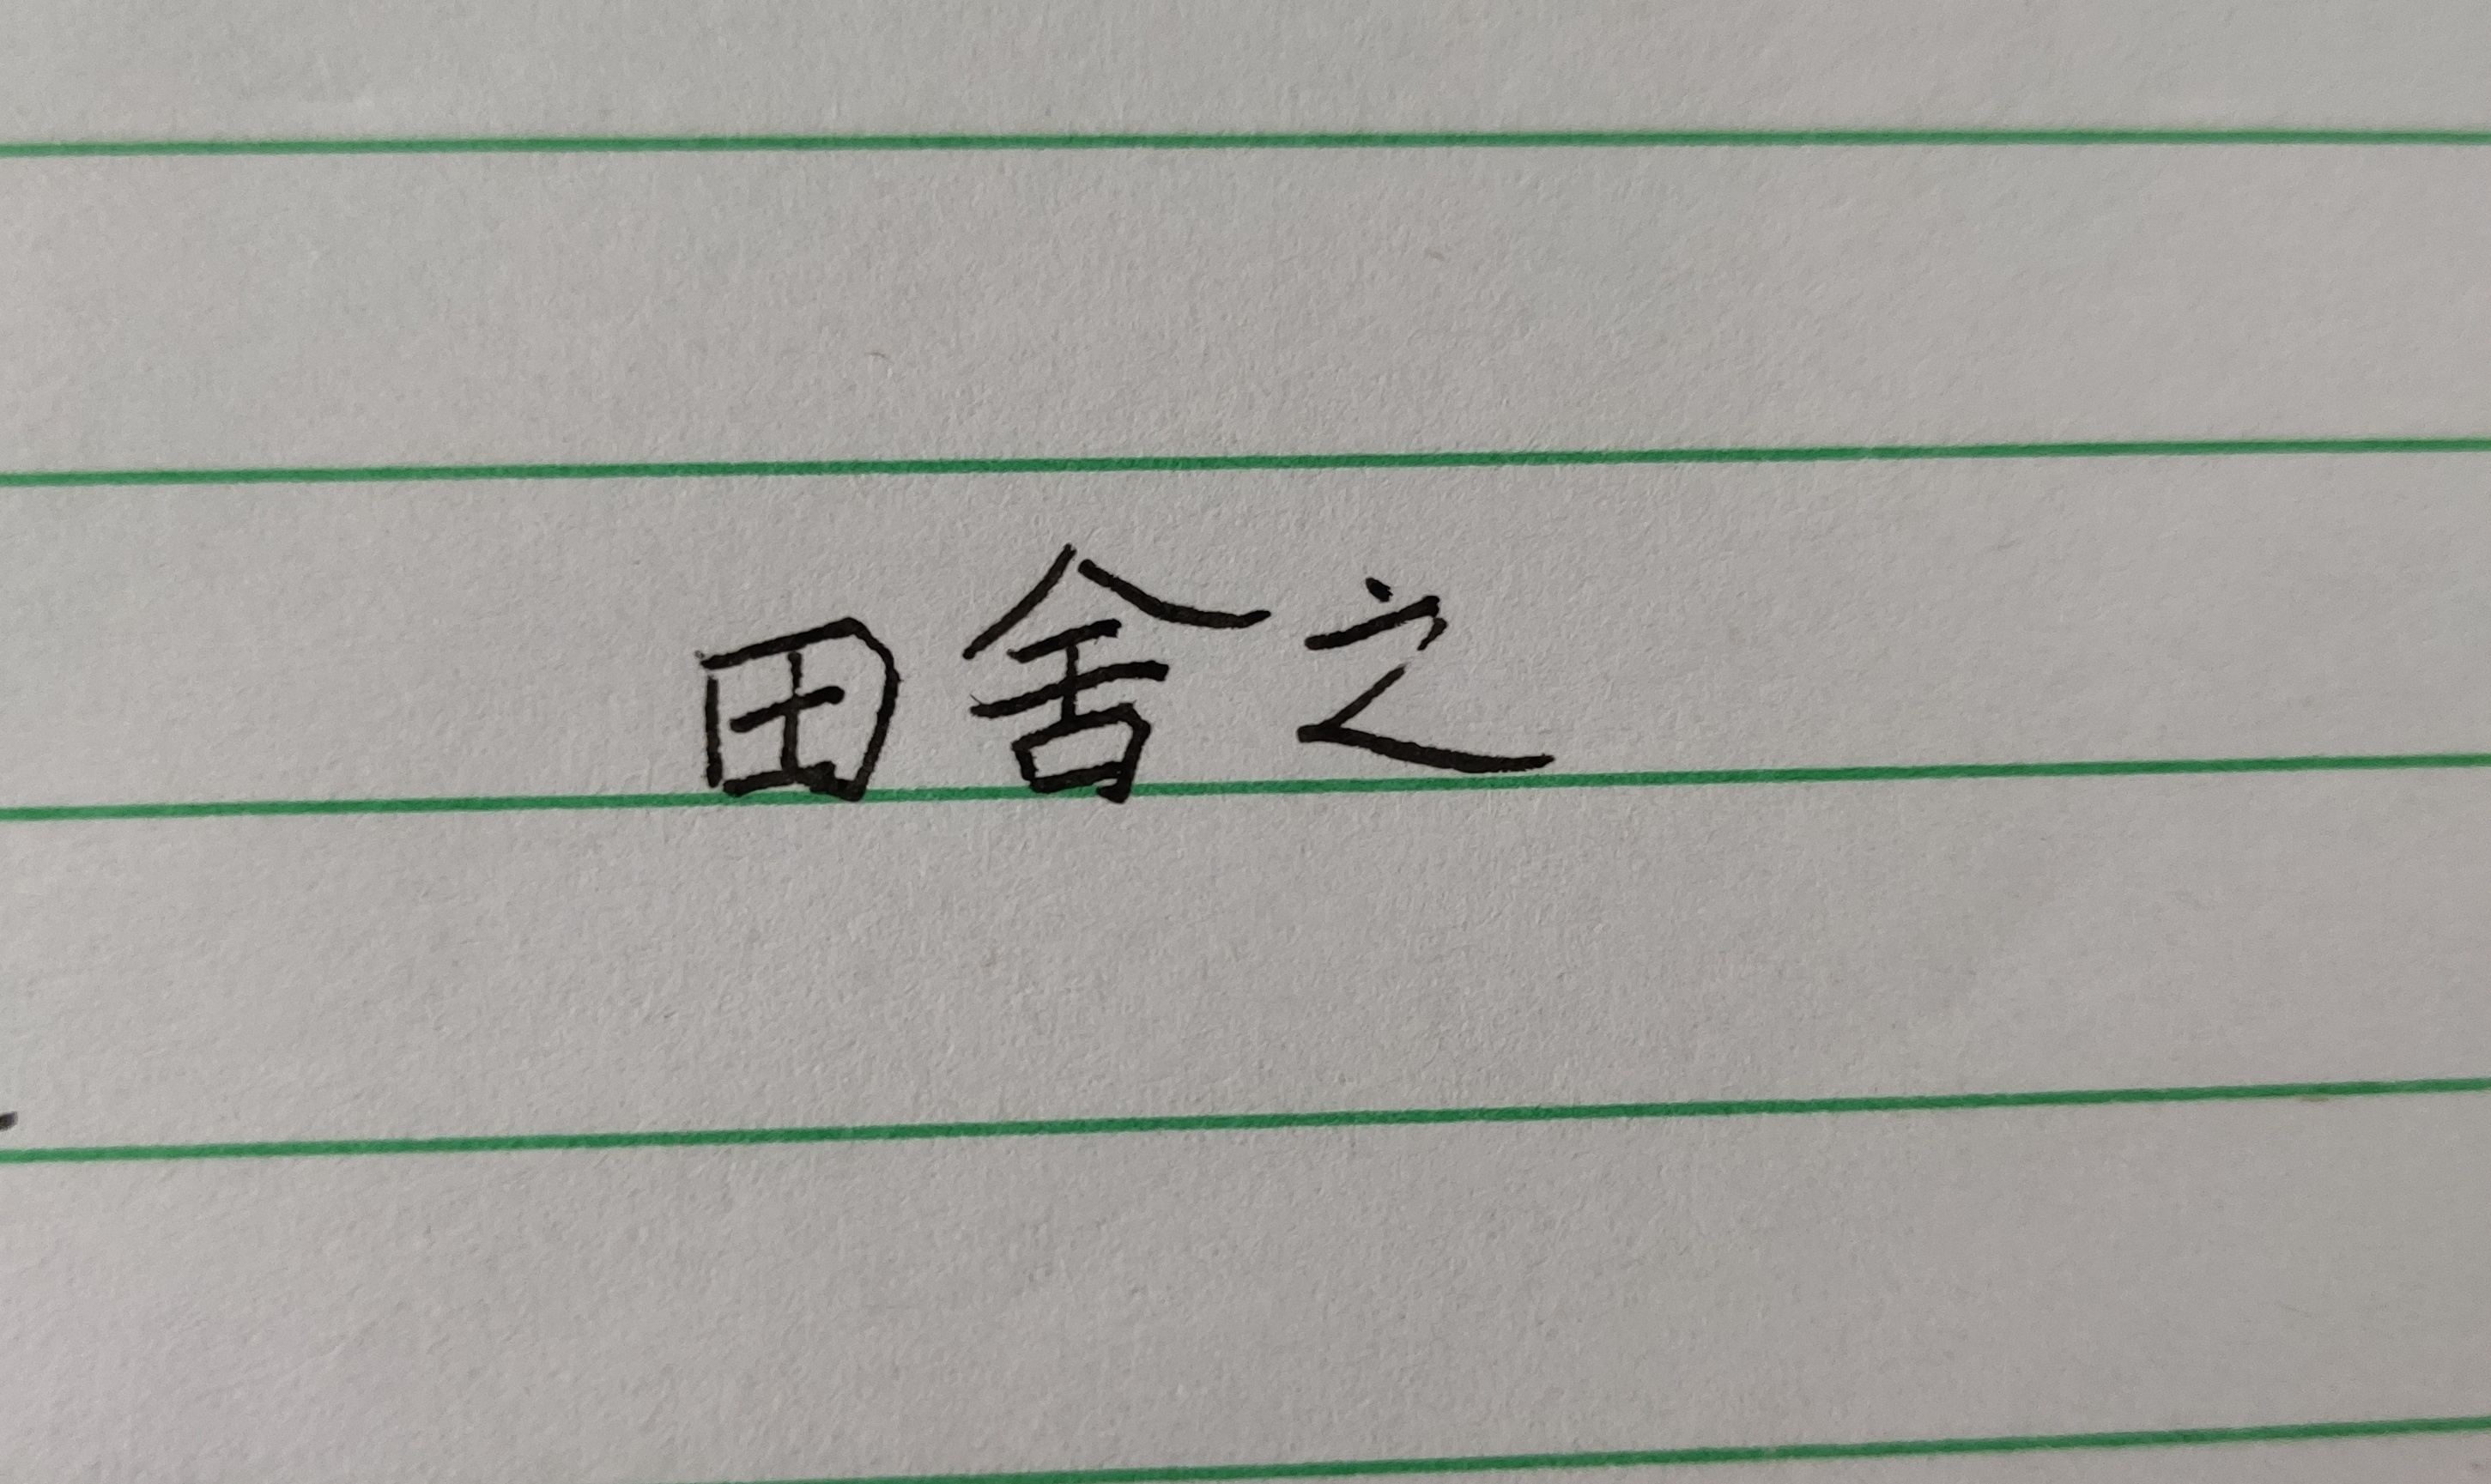 田舍之